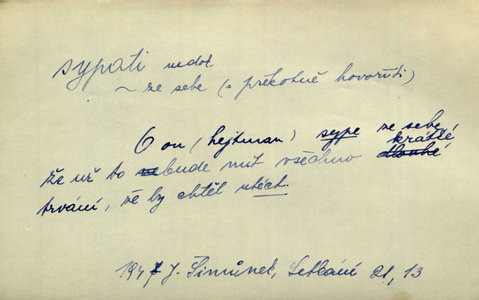 sypati nedok
~ ze sebe (= překotně hovořiti)
on (hejtman) sype ze sebe,
že už to nebude mít všechno dlouhé krátké
trvání, že by chtěl utéct.
1947 J. Šimůnek, Setkání 21, 13